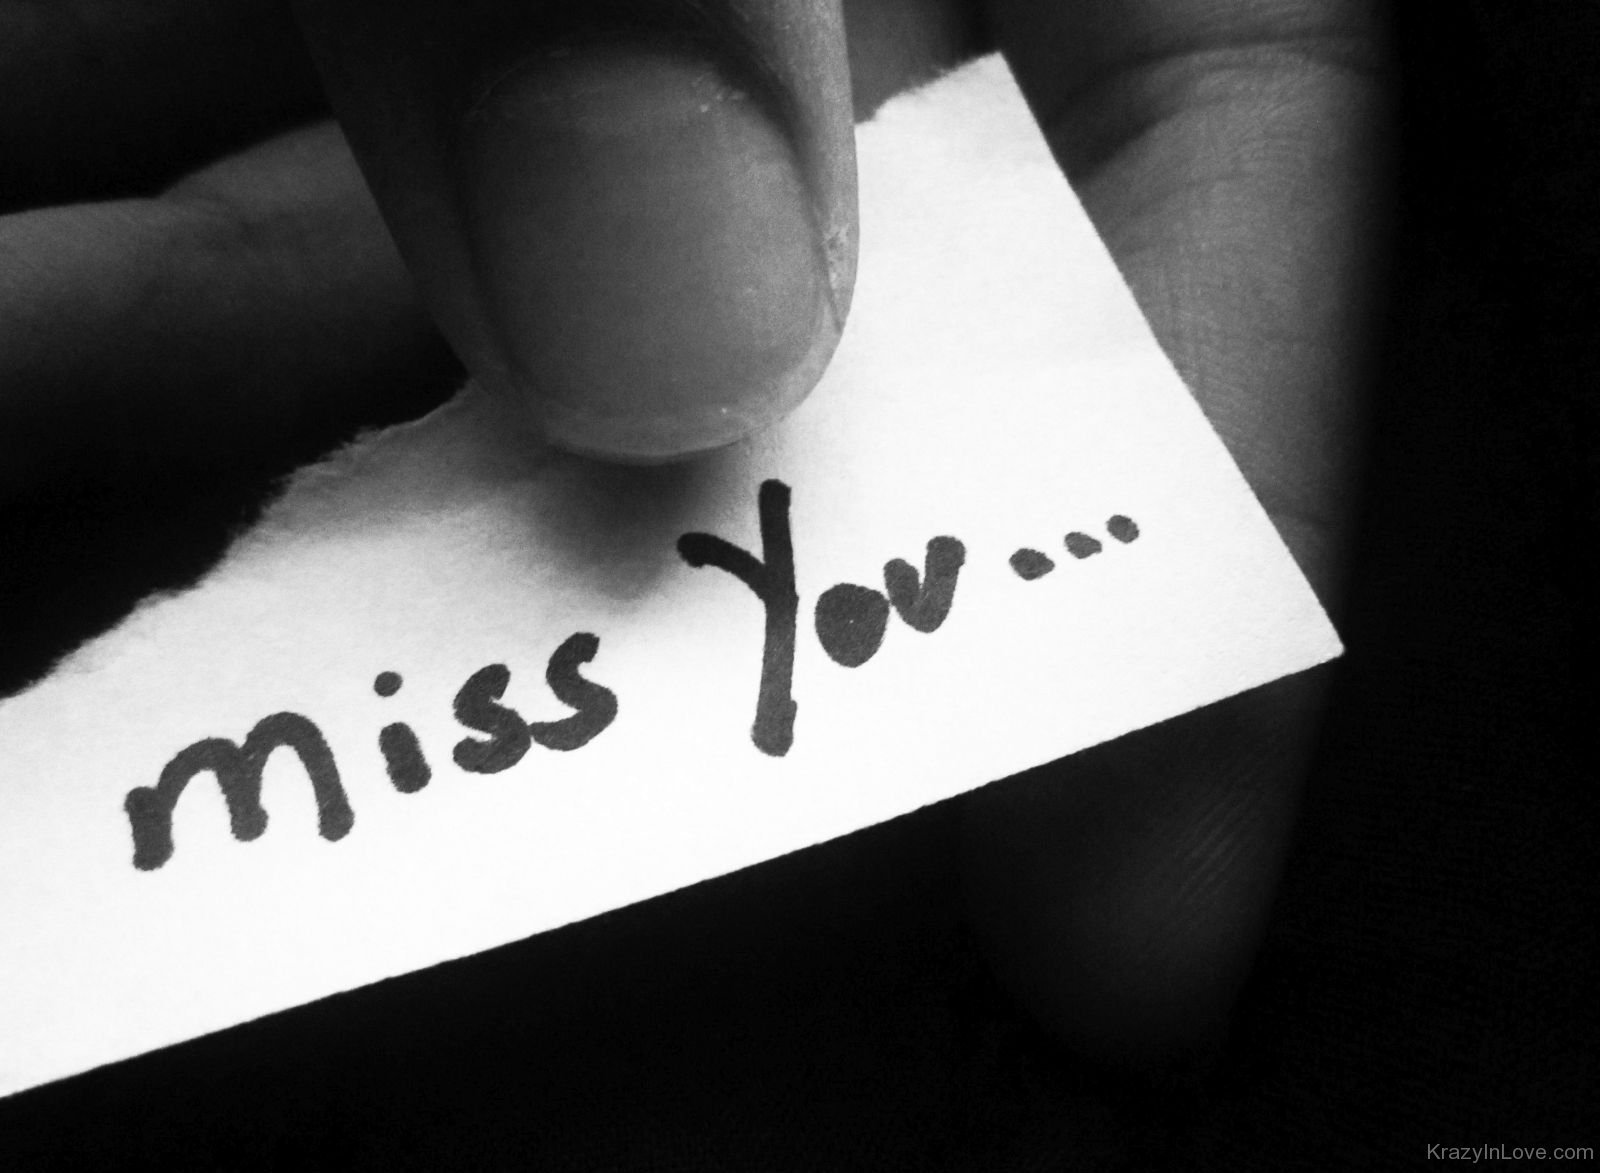 miss You...
KrazyInLove.com